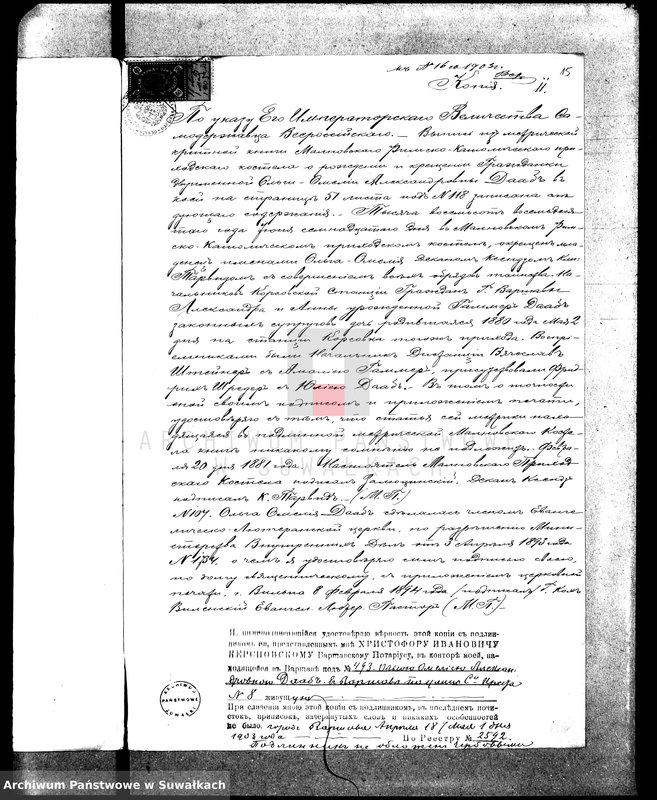 къ № 16 га 1903 г.
15
Копія.
II.
По указу Его Императорскаго Величества Са-
модержавца Всероссійскаго. — Выпись изъ метрической
книги Малновскаго Римско-Католическаго при-
ходскаго костела о рожденіи и крещеніи Гражданки
Ольги-Омеліи Александровны Даабъ въ
коей на страницѣ 51 листа подъ № 118 записана
дующаго содержанія. — Тысяча восемьсотъ восемьдеся-
таго года Іюня семнадцатаго дня въ Малновскомъ Рим-
ско-Католическомъ приходскомъ костелѣ, окрещенъ мла-
денецъ именами Ольга-Омелія Деканомъ Ксендзомъ
съ совершеніемъ всѣхъ обрядовъ таинства. На-
чальниковъ Корсовской Станціи Гражданъ Г. Варшавы
Александра и Анны урожденной Гаммеръ Даабъ
законныхъ супруговъ дочь родившаяся 1880 года Мая 2
дня на станціи Корсовка того же прихода. Воспрі-
емниками были Начальникъ Дистанціи Вячеславъ
Штейнеръ съ Амаліею Гаммеръ, присутствовали Фрид-
рихъ Шредеръ съ Юліею Даабъ. — Въ томъ
своимъ подписомъ и приложеніемъ печати,
удостовѣряю съ тѣмъ, что статья сей метрики нахо-
дящаяся въ подлинной метрической Малновскаго Косте-
ла книгѣ никакому сомнѣнію не подлежитъ. Февра-
ля 20 дня 1881 года. Настоятель Малновскаго Приход-
скаго Костела подписалъ Деканъ Ксендзъ
подписалъ К. (М. П.)
№ 107. Ольга Омелія Даабъ сдѣлалась членомъ Еванге-
лическо-Лютеранской церкви, по разрѣшенію Мини-
стерства Внутреннихъ Дѣлъ отъ 3 Апрѣля 1893 года
№ 1734. о чемъ я удостовѣряю симъ подписью своею,
по долгу священническому, съ приложеніемъ церковной
печати, г. Вильна 8 Февраля 1894 года (подписалъ)
Виленскій Евангел. Лютер. Пасторъ (М. П.)
Я, нижеподписавшійся удостовѣряю вѣрность этой копіи съ подлин-
никомъ ея, представленнымъ мнѣ ХРИСТОФОРУ ИВАНОВИЧУ
КЕРСНОВСКОМУ Варшавскому Нотаріусу, въ конторѣ моей, на-
ходящейся въ Варшавѣ подъ № 473. Ольгою Омеліею Алексан-
дровною Даабъ въ Варшавѣ по улицѣ Св.
№ 8 живущею
При сличеніи мною этой копіи съ подлинникомъ, въ послѣднемъ почи-
стокъ, приписокъ, зачеркнутыхъ словъ и никакихъ особенностей
не было. городъ Варшава Апрѣля 18 / Мая 1 дня
1903 года По Реестру № 2592.
Подлинникъ не обложенъ гербовымъ
ARCHIWUM PAŃSTWOWE
W SUWAŁKACH
ARCHIWUM
PAŃSTWOWE
SUWAŁKI
Archiwum Państwowe w Suwałkach